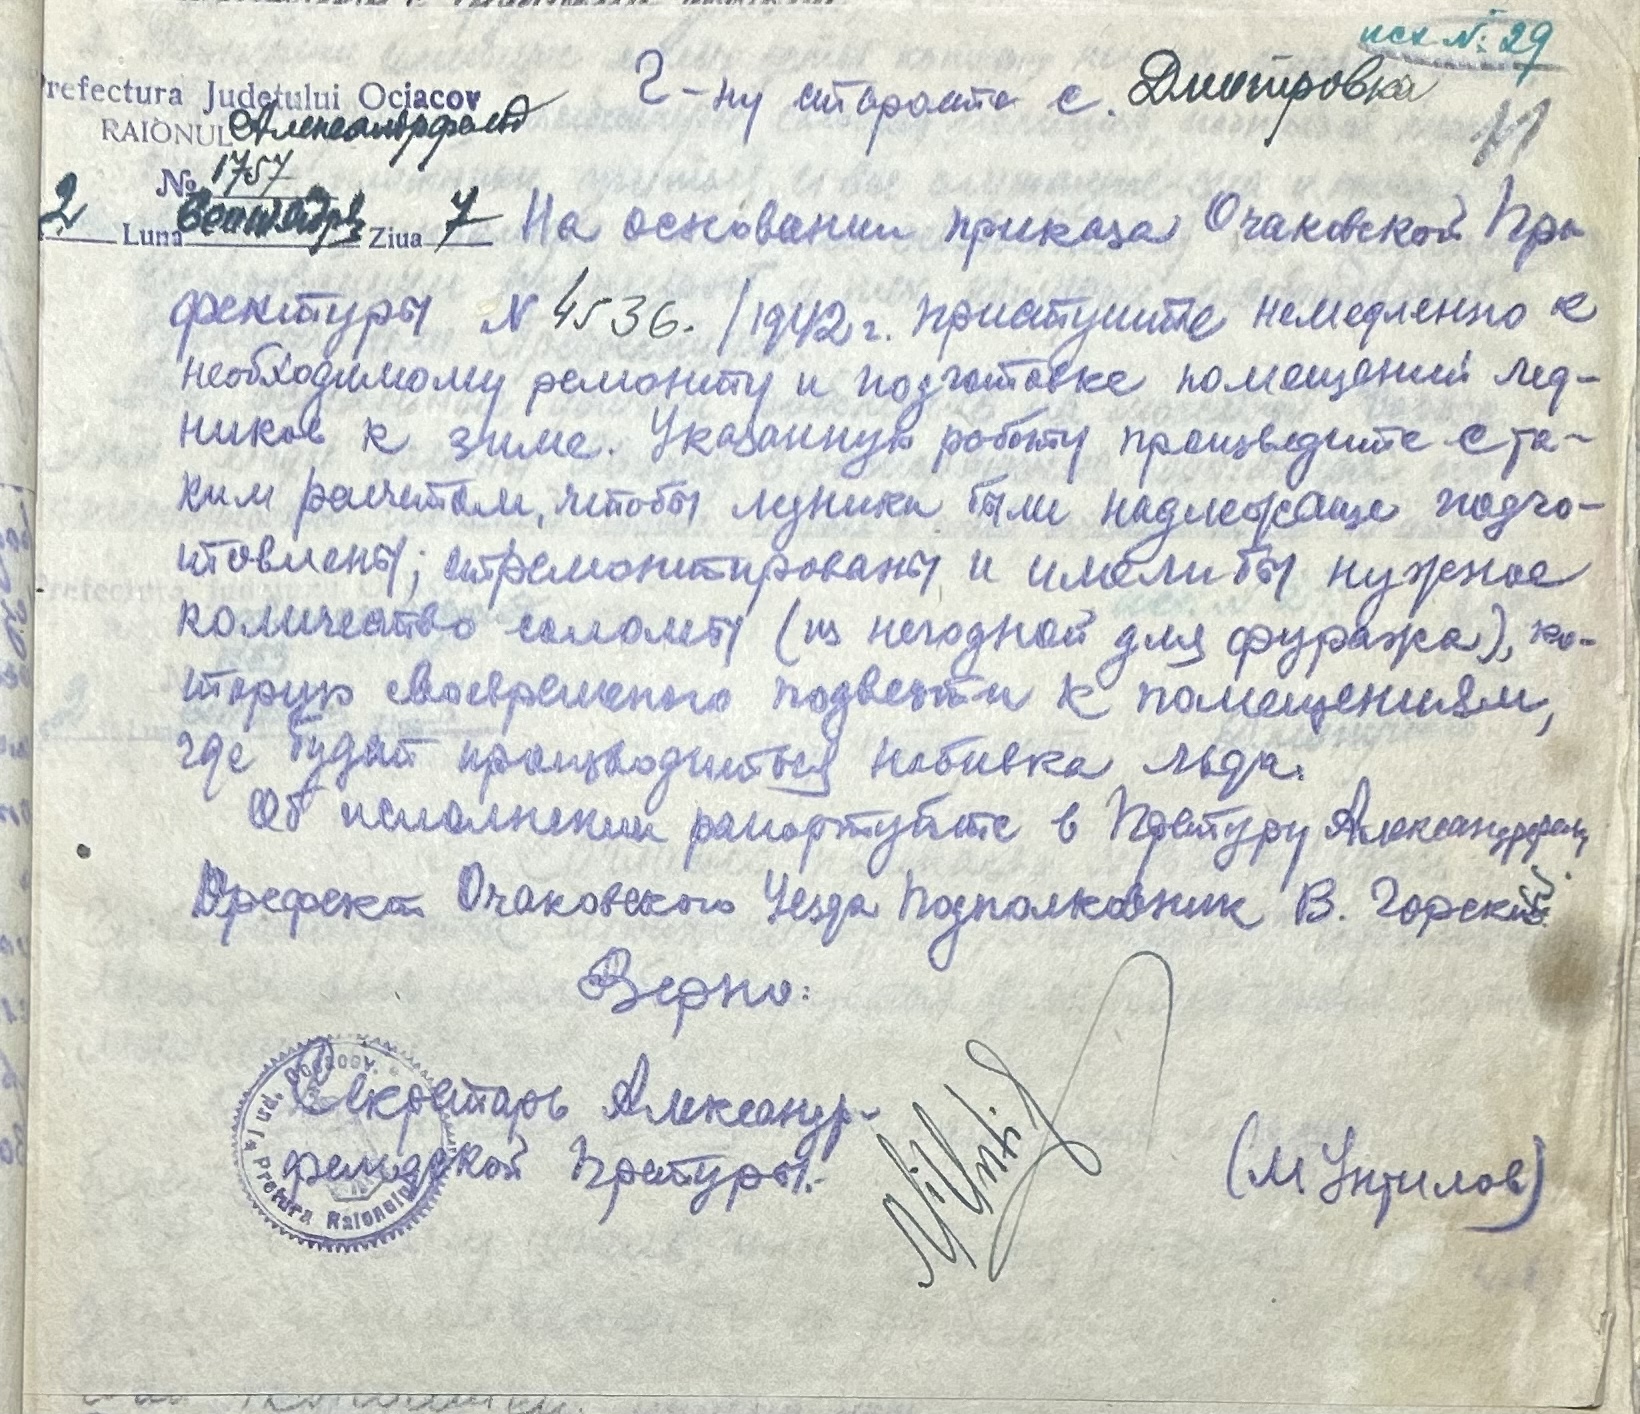 исх №: 29
Prefectura Judeţului Ociacov
RAIONUL Александрфельд
№ 1757
2 Luna Сентября Ziua 7
Г-ну старосте с. Дмитровка
11
На основании приказа Очаковской Пре
фектуры N 4536. /1942 г. приступите немедленно к
необходимому ремонту и подготовке помещений лед-
ников к зиме. Указанную роботу произведите с та-
ким расчетом, чтобы ледники были надлежаще подго-
товлены; отремонтированы и имели бы нужное
количество соломы (из негодной для фуража), ко-
торую своевременно подвезти к помещениям,
где будет производиться набивка льда.
Об исполнении рапортуйте в Претуру Александрфельд
Префект Очаковского Уезда Подполковник В. Горский.
Верно:
Секретарь Александр-
фельдской Претуры.-
(М. Унтилов)
Jud. Ociacov. * Pretura Raionului